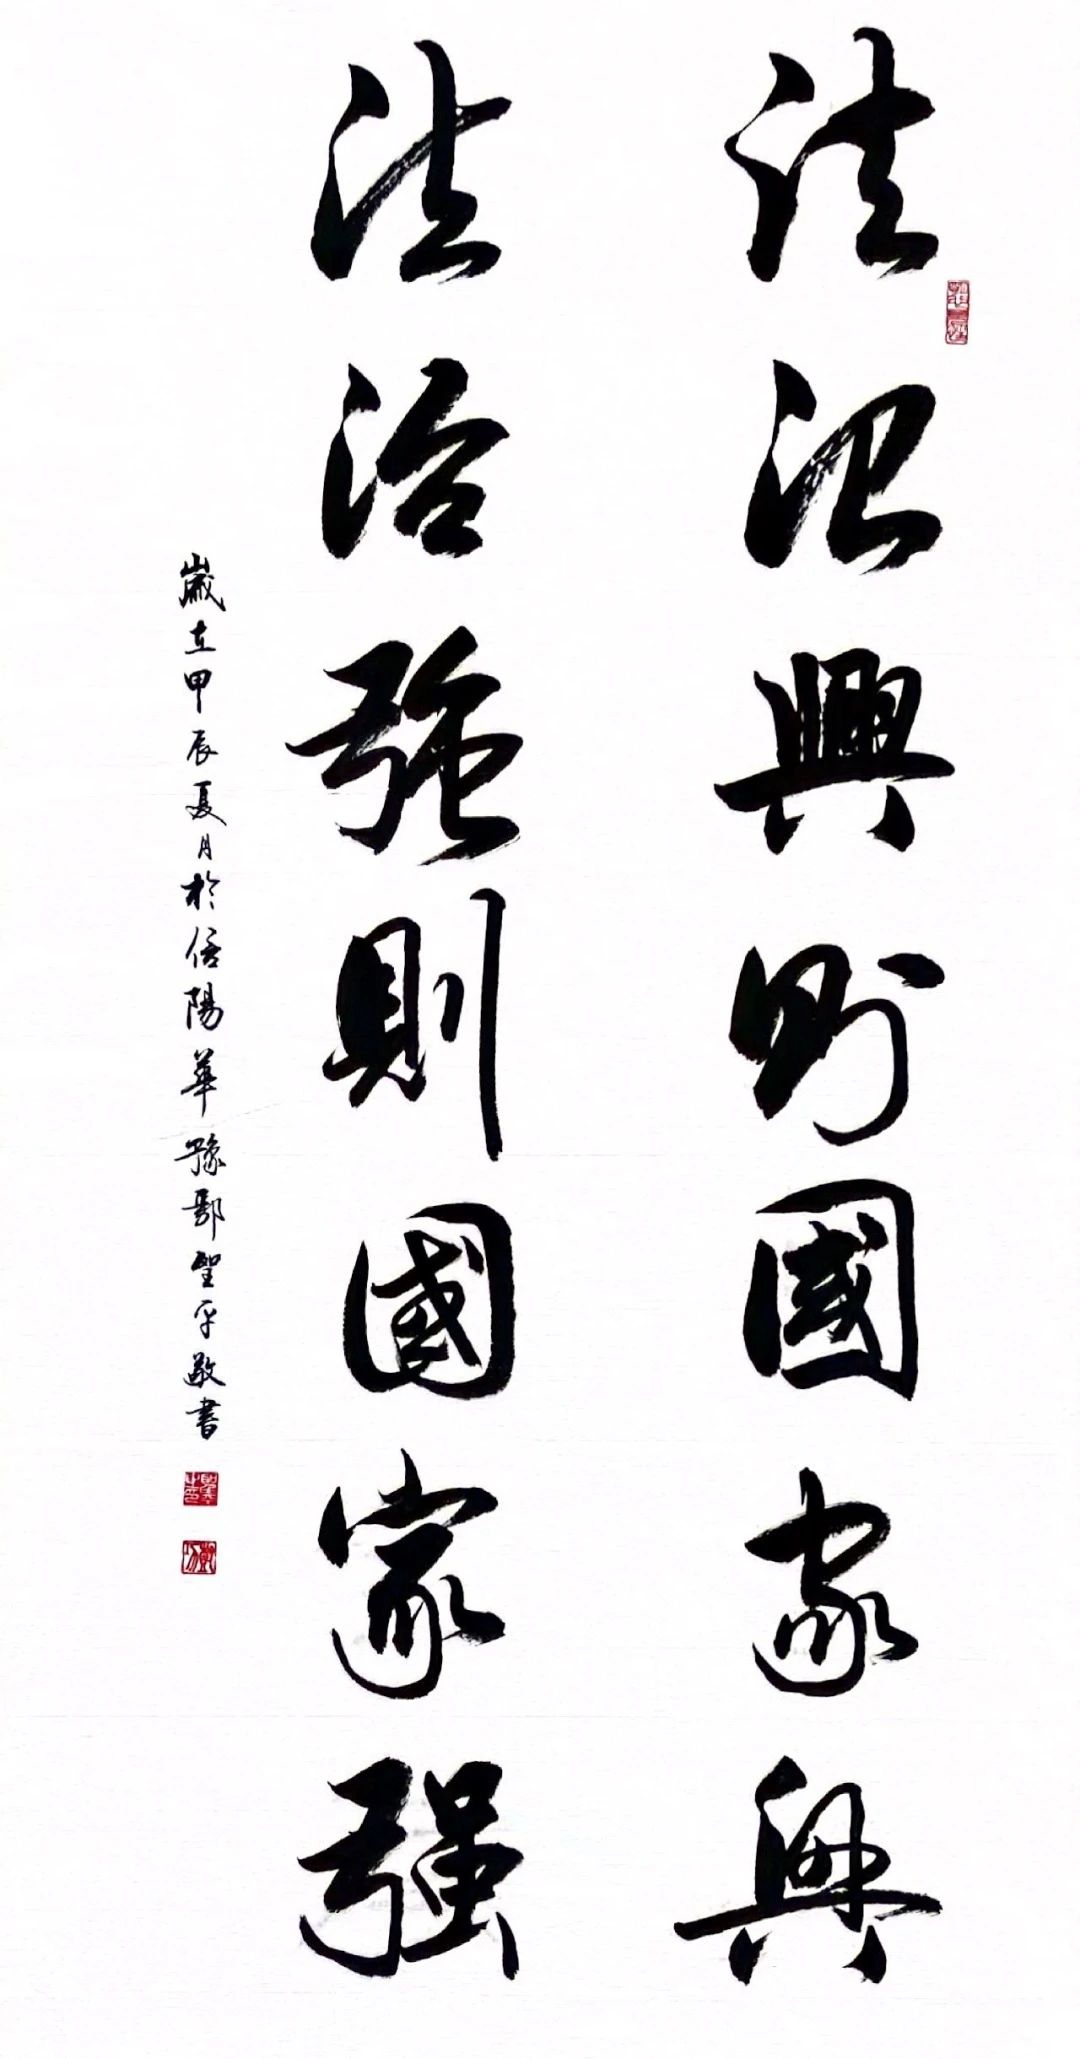 法治興則國家興
法治強則國家强
歲在甲辰夏月於信陽華豫鄢聖平敬書